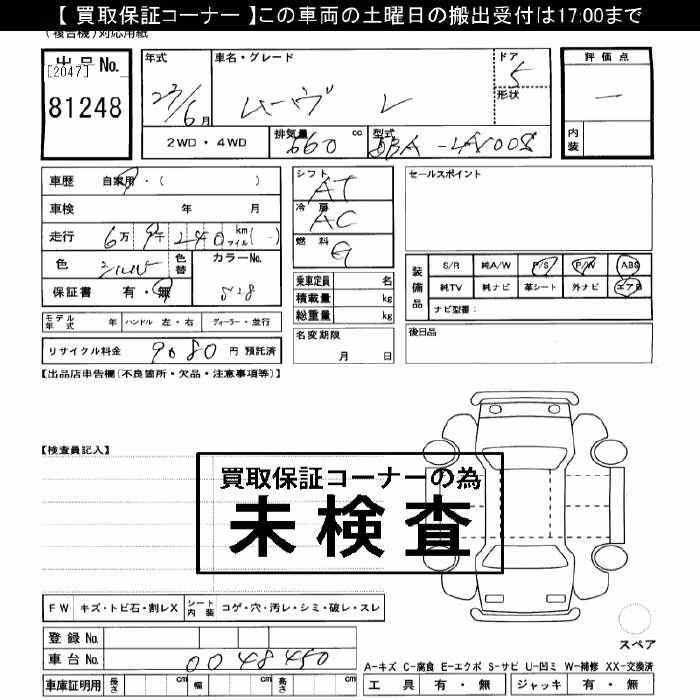 【 買取保証コーナー 】この車両の土曜日の搬出受付は17:00まで
(複合機)対応用紙
出品 No.
[2047]
81248
年式
23/6月
車名・グレード
ムーヴ L
ドア
5
形状
評価点
—
内装
2WD・4WD
排気量
660 cc
型式
DBA-LA100S
車歴 自家用・( )
車検 年 月
走行 6万9千240 km マイル( )
色 シルバー 色替 カラーNo.
S28
保証書 有・無
シフト
AT
冷房
AC
燃料
G
乗車定員 名
積載量 kg
総重量 kg
セールスポイント
装備品
S/R 純A/W P/S P/W ABS
純TV 純ナビ 革シート 外ナビ エアB
ナビ型番:
モデル年式 年 ハンドル 左・右 ディーラー・並行
リサイクル料金 9080 円 預託済
名変期限
月 日
後日品
【出品店申告欄(不良箇所・欠品・注意事項等)】
【検査員記入】
買取保証コーナーの為
未検査
FW キズ・トビ石・割レX シート内装 コゲ・穴・汚レ・シミ・破レ・スレ
スペア
登録 No.
車台 No. 0048450
車庫証明用 長さ cm 幅 cm 高さ cm
A-キズ C-腐食 E-エクボ S-サビ U-凹ミ W-補修 XX-交換済
工具 有・無 ジャッキ 有・無